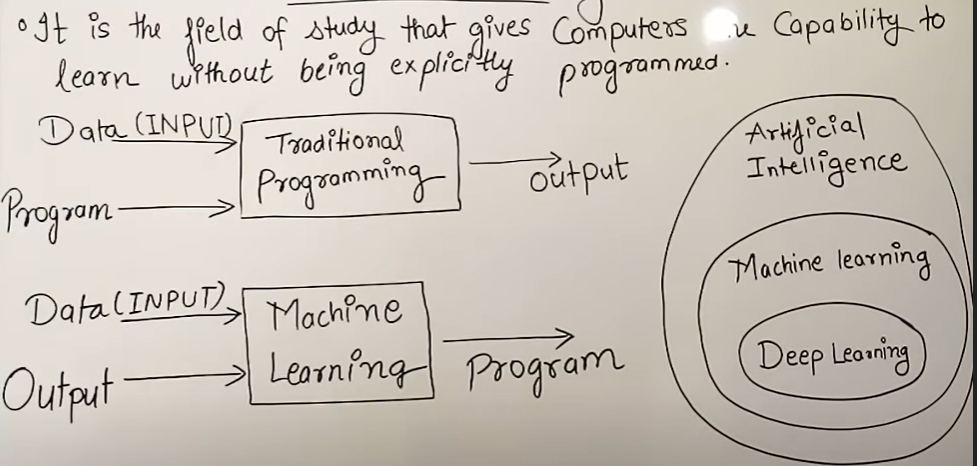 It is the field of study that gives Computers Capability to
learn without being explicitly programmed.
Data (INPUT)
Traditional
Programming
Output
Program
Data (INPUT)
Machine
Learning
Program
Output
Artificial
Intelligence
Machine learning
Deep Learning